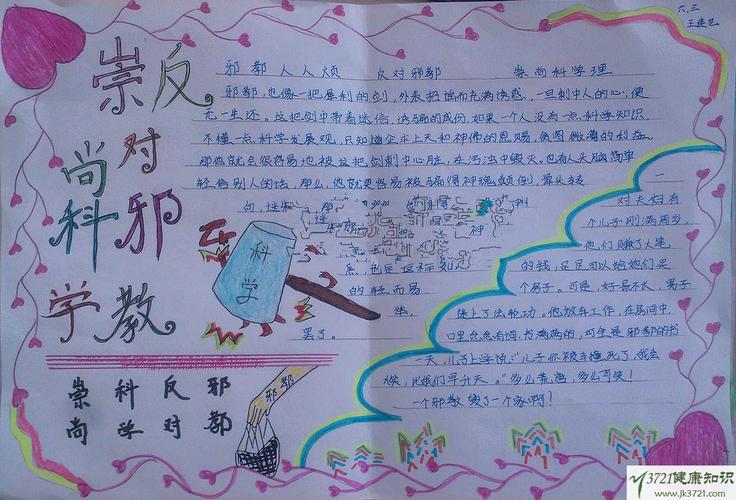 六.三
崇尚科学
反对邪教
邪都人人烦 反对邪都 崇尚科学理
邪都,也像一把犀利的剑,外表招谣而充满诱惑,一旦刺中人的心,便
无一生还,这把剑中带着迷信、诱骗的成份,如果一个人没有一点科学知识,
不懂一点科学发展观,只知道企求上天和神佛的恩赐,贪图微薄的利益,
那他就会很容易地被这把剑刺中心脏,在污浊中毁灭。也有人头脑简单
轻信别人的话,那么,他就更容易被骗得神魂颠倒,晕头转
向
神
的轻而易
举
罢了。
一
对夫妇有
个儿子刚满周岁,
他们赚了大笔
的钱,足足可以给她们买
个房子。可是,好景不长,妻子
迷上了法轮功。他放弃工作,在房间中
口里念念有词,书满满的,可全是邪都的书
一天,儿子上学说:“儿子你被车撞死了,我会
让我们早升天。”多么荒唐,多么可笑!
一个邪教毁了一个家啊!
科学
崇科反邪
尚学对都
邪都
3721健康知识
www.jk3721.com